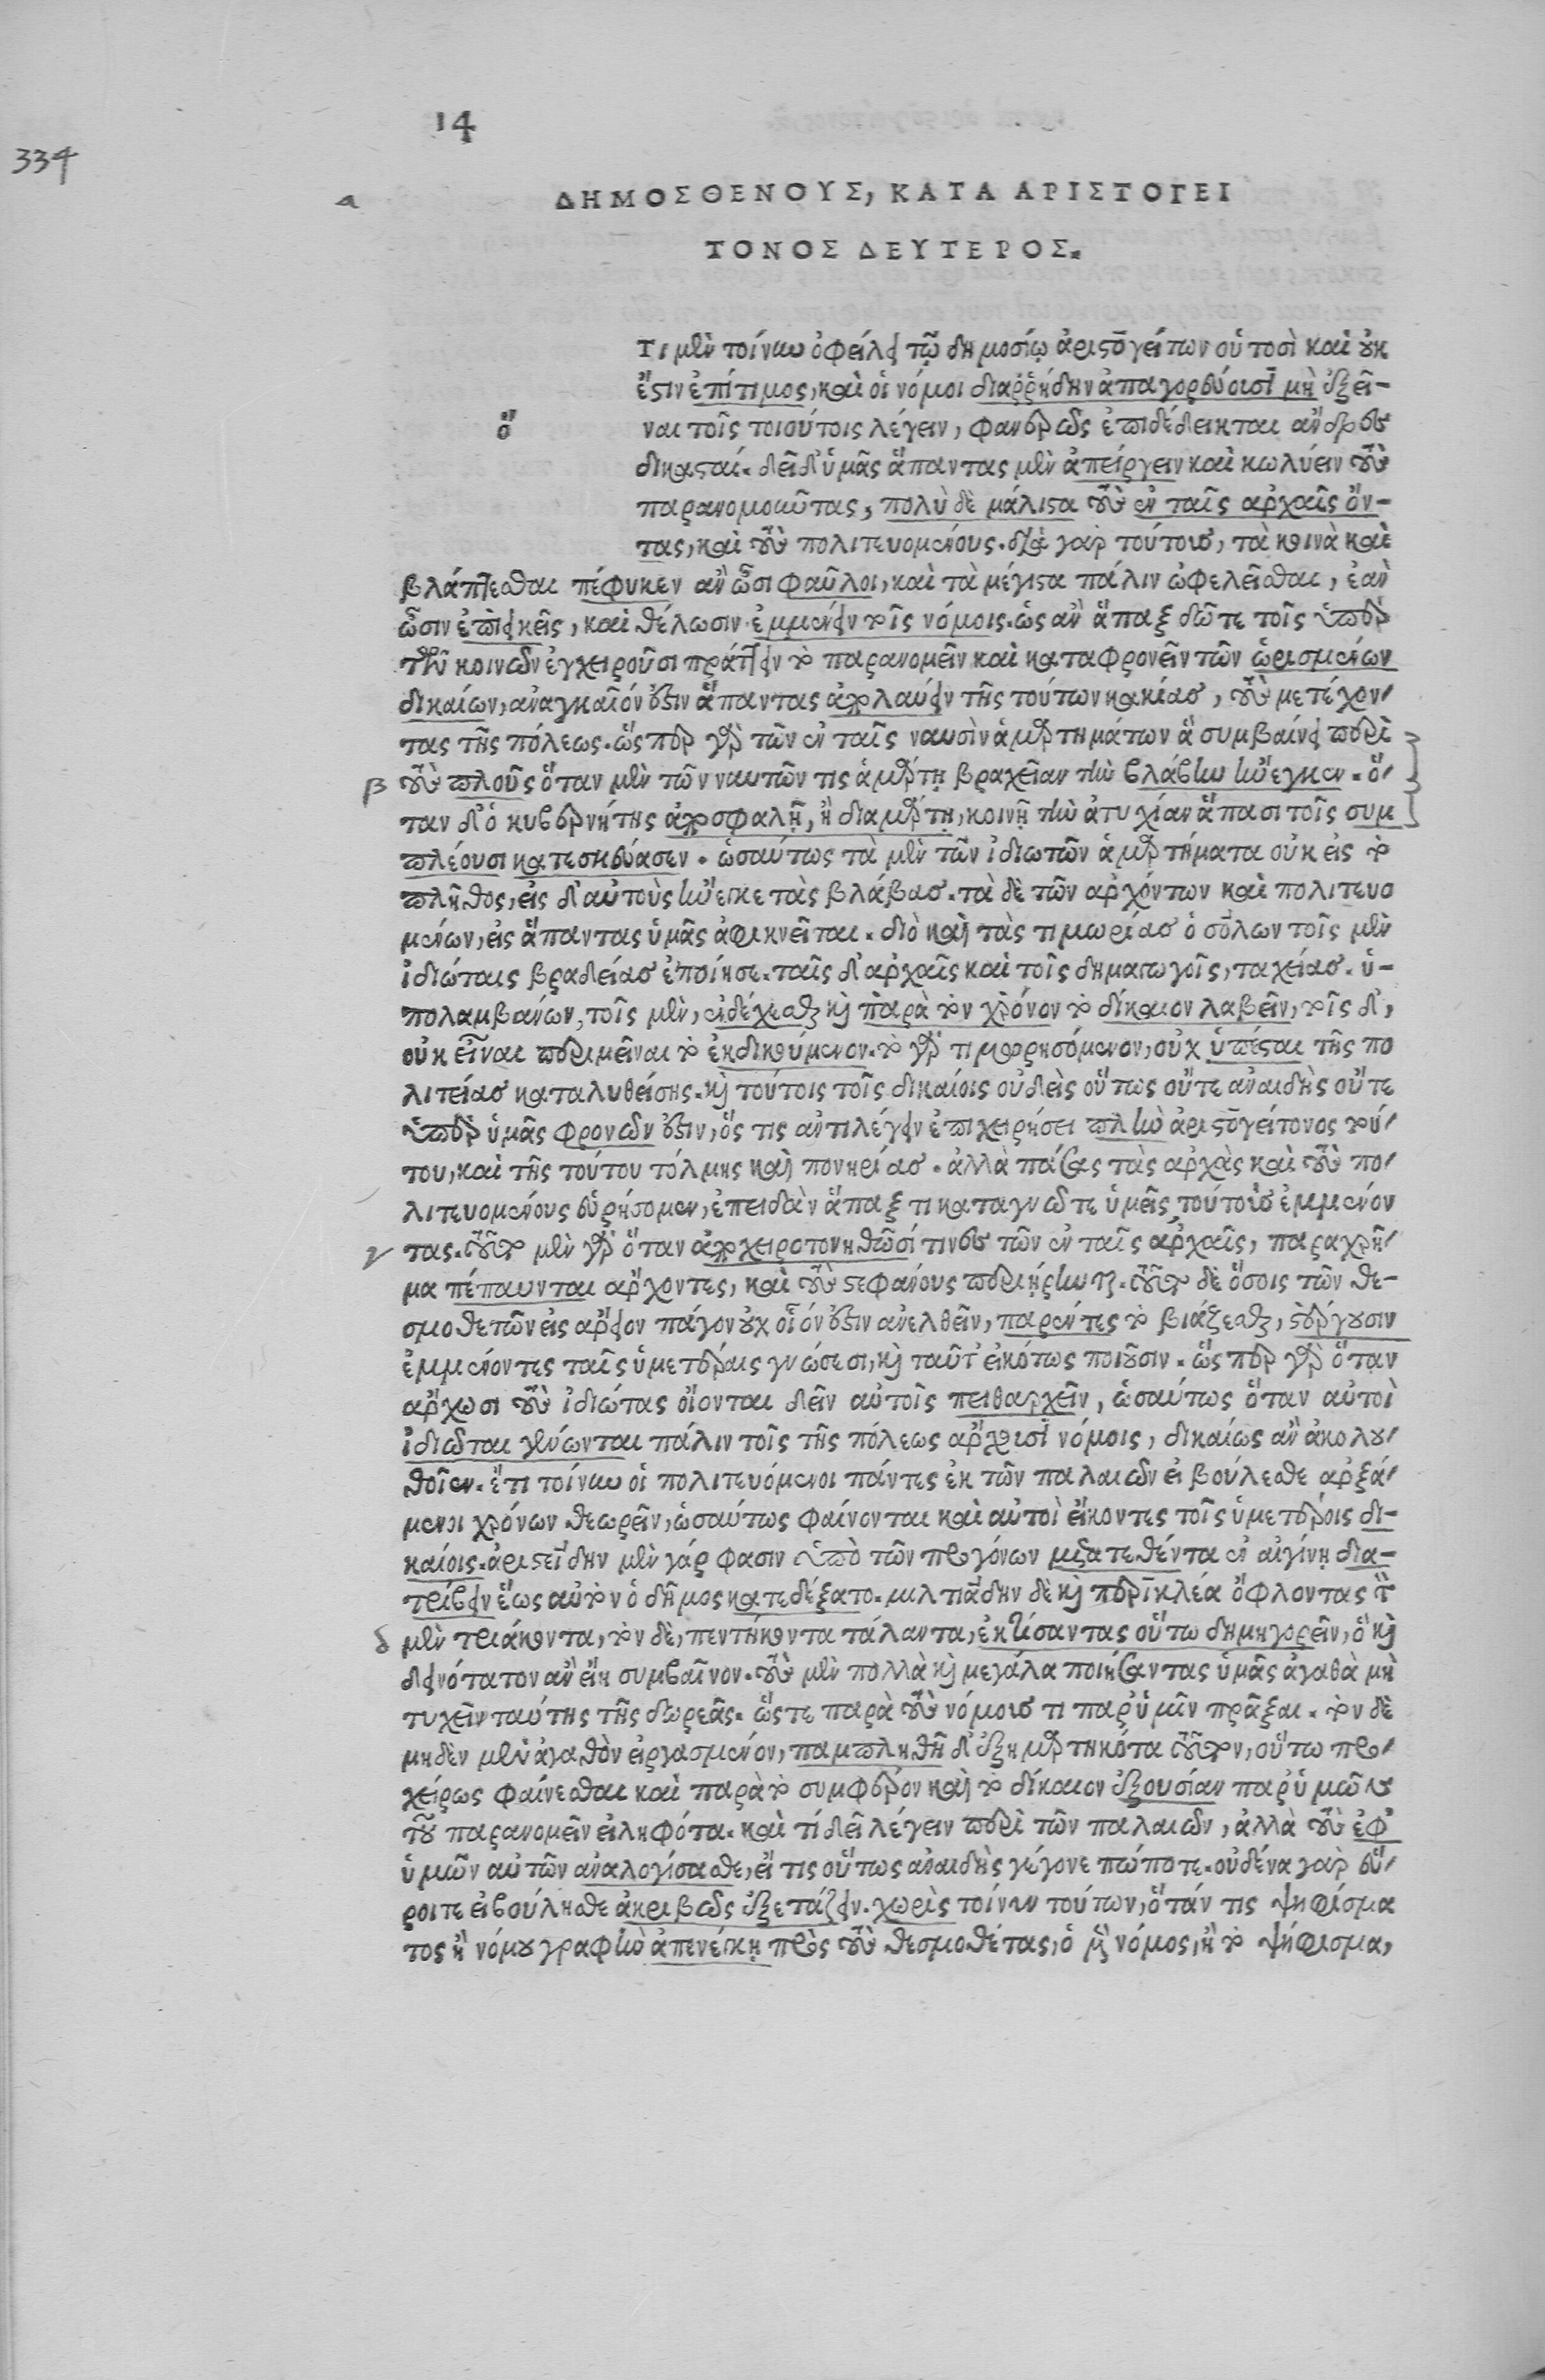 14
334
α
ΔΗΜΟΣΘΕΝΟΥΣ, ΚΑΤΑ ΑΡΙΣΤΟΓΕΙ
ΤΟΝΟΣ ΔΕΥΤΕΡΟΣ.
ὅ
Τι μὲν τοίνυν ὀφείλει τῷ δημοσίῳ ἀριστογείτων οὑτοσὶ καὶ οὐκ
ἔστιν ἐπίτιμος, καὶ οἱ νόμοι διαῤῥήδην ἀπαγορεύουσι μὴ ἐξεῖ-
ναι τοῖς τοιούτοις λέγειν, φανερῶς ἐπιδέδεικται ἄνδρες
δικασταί. δεῖ δ' ὑμᾶς ἅπαντας μὲν ἀπείργειν καὶ κωλύειν τοὺς
παρανομοῦντας, πολὺ δὲ μάλιστα τοὺς ἐν ταῖς ἀρχαῖς ὄν-
τας, καὶ τοὺς πολιτευομένους. διὰ γὰρ τούτους, τὰ κοινὰ καὶ
βλάπτεσθαι πέφυκεν ἂν ὦσι φαῦλοι, καὶ τὰ μέγιστα πάλιν ὠφελεῖσθαι, ἐὰν
ὦσιν ἐπιεικεῖς, καὶ θέλωσιν ἐμμένειν τοῖς νόμοις. ὡς ἂν ἅπαξ δῶτε τοῖς ὑπὲρ
τῶν κοινῶν ἐγχειροῦσι πράττειν τὸ παρανομεῖν καὶ καταφρονεῖν τῶν ὡρισμένων
δικαίων, ἀναγκαῖόν ἐστιν ἅπαντας ἀπολαύειν τῆς τούτων κακίας, τοὺς μετέχον/
τας τῆς πόλεως. ὥσπερ γὰρ τῶν ἐν ταῖς ναυσὶν ἁμαρτημάτων ἃ συμβαίνει περὶ
β τοὺς πλοῦς ὅταν μὲν τῶν ναυτῶν τις ἁμάρτῃ βραχεῖαν τὴν βλάβην ἤνεγκεν. ὅ/
ταν δ' ὁ κυβερνήτης ἀποσφαλῇ, ἢ διαμάρτῃ, κοινῇ τὴν ἀτυχίαν ἅπασι τοῖς συμ
πλέουσι κατεσκεύασεν. ὡσαύτως τὰ μὲν τῶν ἰδιωτῶν ἁμαρτήματα οὐκ εἰς τὸ
πλῆθος, εἰς δ' αὐτοὺς ἤνεγκε τὰς βλάβας. τὰ δὲ τῶν ἀρχόντων καὶ πολιτευο
μένων, εἰς ἅπαντας ὑμᾶς ἀφικνεῖται. διὸ καὶ τὰς τιμωρίας ὁ σόλων τοῖς μὲν
ἰδιώταις βραδείας ἐποίησε. ταῖς δ' ἀρχαῖς καὶ τοῖς δημαγωγοῖς, ταχείας. ὑ-
πολαμβάνων, τοῖς μὲν, ἐνδέχεσθαι καὶ παρὰ τὸν χρόνον τὸ δίκαιον λαβεῖν, τοῖς δ',
οὐκ εἶναι περιμεῖναι τὸ ἐκδικούμενον. τὸ γὰρ τιμωρησόμενον, οὐχ ὑπέσται τῆς πο
λιτείας καταλυθείσης. καὶ τούτοις τοῖς δικαίοις οὐδεὶς οὕτως οὔτε ἀναιδὴς οὔτε
ὑπὲρ ὑμᾶς φρονῶν ἐστιν, ὅς τις ἀντιλέγειν ἐπιχειρήσει πλὴν ἀριστογείτονος τού/
του, καὶ τῆς τούτου τόλμης καὶ πονηρίας. ἀλλὰ πάσας τὰς ἀρχὰς καὶ τοὺς πο/
λιτευομένους εὑρήσομεν, ἐπειδὰν ἅπαξ τι καταγνῶτε ὑμεῖς, τούτοις ἐμμένον
γ τας. τοῦτο μὲν γὰρ ὅταν ἀποχειροτονηθῶσί τινες τῶν ἐν ταῖς ἀρχαῖς, παραχρῆ/
μα πέπαυνται ἄρχοντες, καὶ τοὺς στεφάνους περιῄρηνται. τοῦτο δὲ ὅσοις τῶν θε-
σμοθετῶν εἰς ἄρειον πάγον οὐχ οἷόν ἐστιν ἀνελθεῖν, παρέντες τὸ βιάζεσθαι, στέργουσιν
ἐμμένοντες ταῖς ὑμετέραις γνώσεσι, καὶ ταῦτ' εἰκότως ποιοῦσιν. ὥσπερ γὰρ ὅταν
ἄρχωσι τοὺς ἰδιώτας οἴονται δεῖν αὐτοῖς πειθαρχεῖν, ὡσαύτως ὅταν αὐτοὶ
ἰδιῶται γένωνται πάλιν τοῖς τῆς πόλεως ἄρχουσι νόμοις, δικαίως ἂν ἀκολου/
θοῖεν. ἔτι τοίνυν οἱ πολιτευόμενοι πάντες ἐκ τῶν παλαιῶν εἰ βούλεσθε ἀρξά/
μενοι χρόνων θεωρεῖν, ὡσαύτως φαίνονται καὶ αὐτοὶ εἴκοντες τοῖς ὑμετέροις δι-
καίοις. ἀριστείδην μὲν γάρ φασιν ὑπὸ τῶν προγόνων μετατεθέντα ἐν αἰγίνῃ δια-
τρίβειν ἕως αὐτὸν ὁ δῆμος κατεδέξατο. μιλτιάδην δὲ καὶ περικλέα ὄφλοντας τὸν
δ μὲν τριάκοντα, τὸν δὲ, πεντήκοντα τάλαντα, ἐκτίσαντας οὕτω δημηγορεῖν, ὃ καὶ
δεινότατον ἂν εἴη συμβαῖνον. τοὺς μὲν πολλὰ καὶ μεγάλα ποιήσαντας ὑμᾶς ἀγαθὰ μὴ
τυχεῖν ταύτης τῆς δωρεᾶς. ὥστε παρὰ τοὺς νόμους τι παρ' ὑμῖν πρᾶξαι. τὸν δὲ
μηδὲν μὲν ἀγαθὸν εἰργασμένον, παμπληθῆ δ' ἐξημαρτηκότα τοῦτον, οὕτω προ/
χείρως φαίνεσθαι καὶ παρὰ τὸ συμφέρον καὶ τὸ δίκαιον ἐξουσίαν παρ' ὑμῶν
τοῦ παρανομεῖν εἰληφότα. καὶ τί δεῖ λέγειν περὶ τῶν παλαιῶν, ἀλλὰ τοὺς ἐφ'
ὑμῶν αὐτῶν ἀναλογίσασθε, εἴ τις οὕτως ἀναιδὴς γέγονε πώποτε. οὐδένα γὰρ εὕ/
ροιτε εἰ βούλησθε ἀκριβῶς ἐξετάζειν. χωρὶς τοίνυν τούτων, ὅτάν τις ψηφίσμα
τος ἢ νόμου γραφὴν ἀπενέγκῃ πρὸς τοὺς θεσμοθέτας, ὁ μὲν νόμος, ἢ τὸ ψήφισμα,